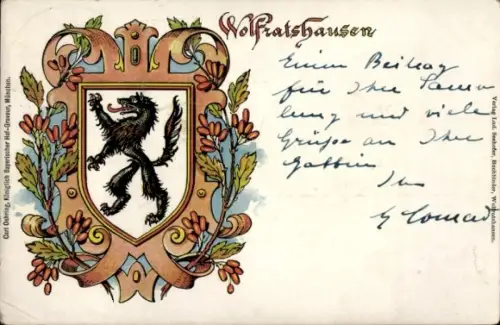 Wolfratshausen
Einen Beitrag
für Ihre Samm-
lung und viele
Grüße an Ihre
Gattin
Ihr
G Conrad
Carl Oehring, Königlich Bayerischer Hof-Graveur, München.
Verlag Ludw. Seehofer, Buchbinder, Wolfratshausen.